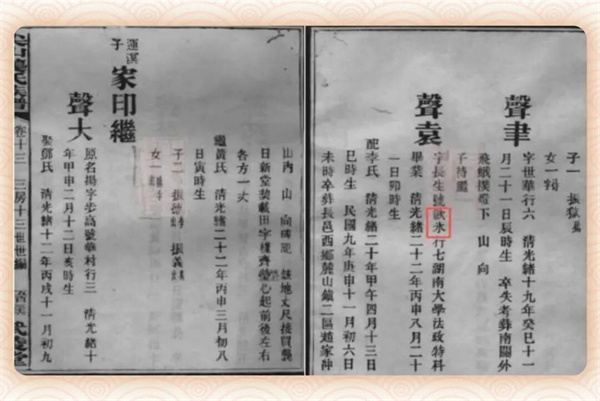 子一
女一
聲聿
字世華行六 清光緒十九年癸巳十一
月二十一日辰時生 卒失考彝南關外
飛蛾撲燈下 山向
子待繼
聲袁
字長生號歐氷行七湖南大學法政特科
畢業 清光緒二十二年丙申八月二十
一日卯時生
配李氏 清光緒二十年甲午四月十三日
巳時生 民國九年庚申十一月初六日
未時卒彝長邑西鄉麓山鎮二區趙家
山內 山向 該地丈尺接買龔
日新堂契載田字樣齊塋心起前後左右
各方一丈
繼黃氏 清光緒二十二年丙申三月初八
日寅時生
子二 振德 振義
女一
子
家印繼
聲大
原名揚字步高號華村行三 清光緒十
年甲申二月十二日亥時生
娶鄧氏 清光緒十二年丙戌十一月初九
卷十三 三房十三世世編